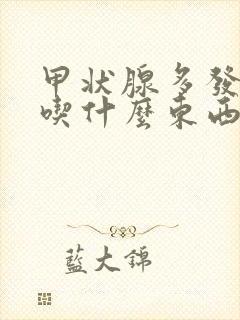 甲状腺多發
喫什麽東西
藍大錦